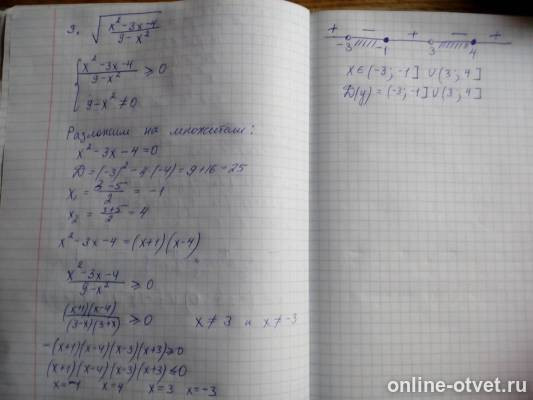 3. √((x²-3x-4)/(9-x²))
{ (x²-3x-4)/(9-x²) ≥ 0
9-x² ≠ 0
Разложим на множители:
x²-3x-4=0
D=(-3)²-4·(-4)=9+16=25
x₁ = (3-5)/2 = -1
x₂ = (3+5)/2 = 4
x²-3x-4=(x+1)(x-4)
(x²-3x-4)/(9-x²) ≥ 0
((x+1)(x-4))/((3-x)(3+x)) ≥ 0 x ≠ 3 и x ≠ -3
-(x+1)(x-4)(x-3)(x+3) ≥ 0
(x+1)(x-4)(x-3)(x+3) ≤ 0
x=-1 x=4 x=3 x=-3
+ - + - +
-3 -1 3 4
x ∈ (-3; -1] ∪ (3; 4]
D(y) = (-3; -1] ∪ (3; 4]
online-otvet.ru